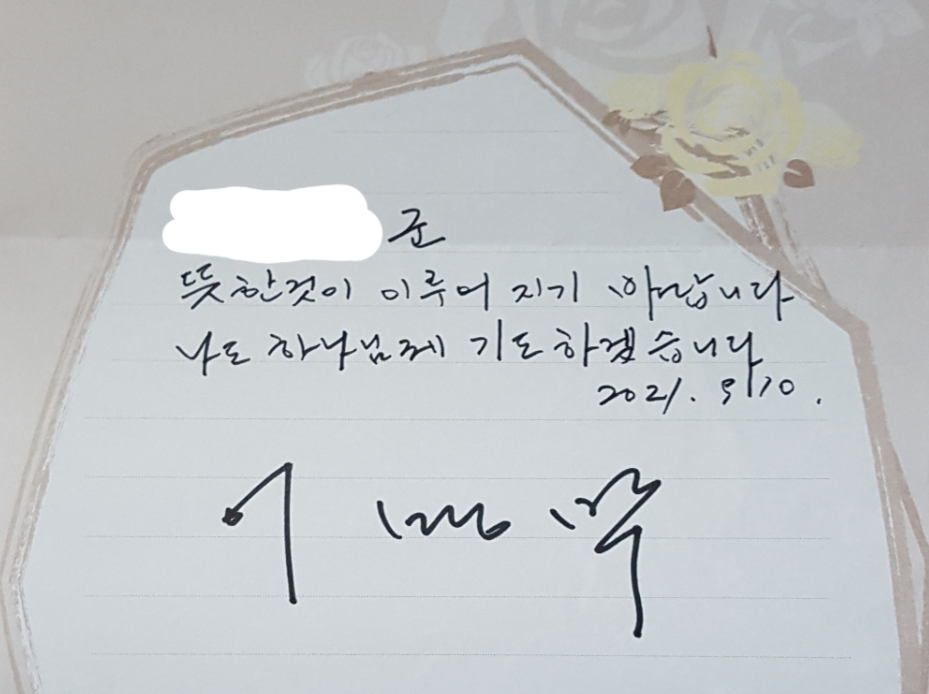 군
뜻한것이 이루어 지기 바랍니다
나도 하나님께 기도하겠습니다
2021. 9/10.